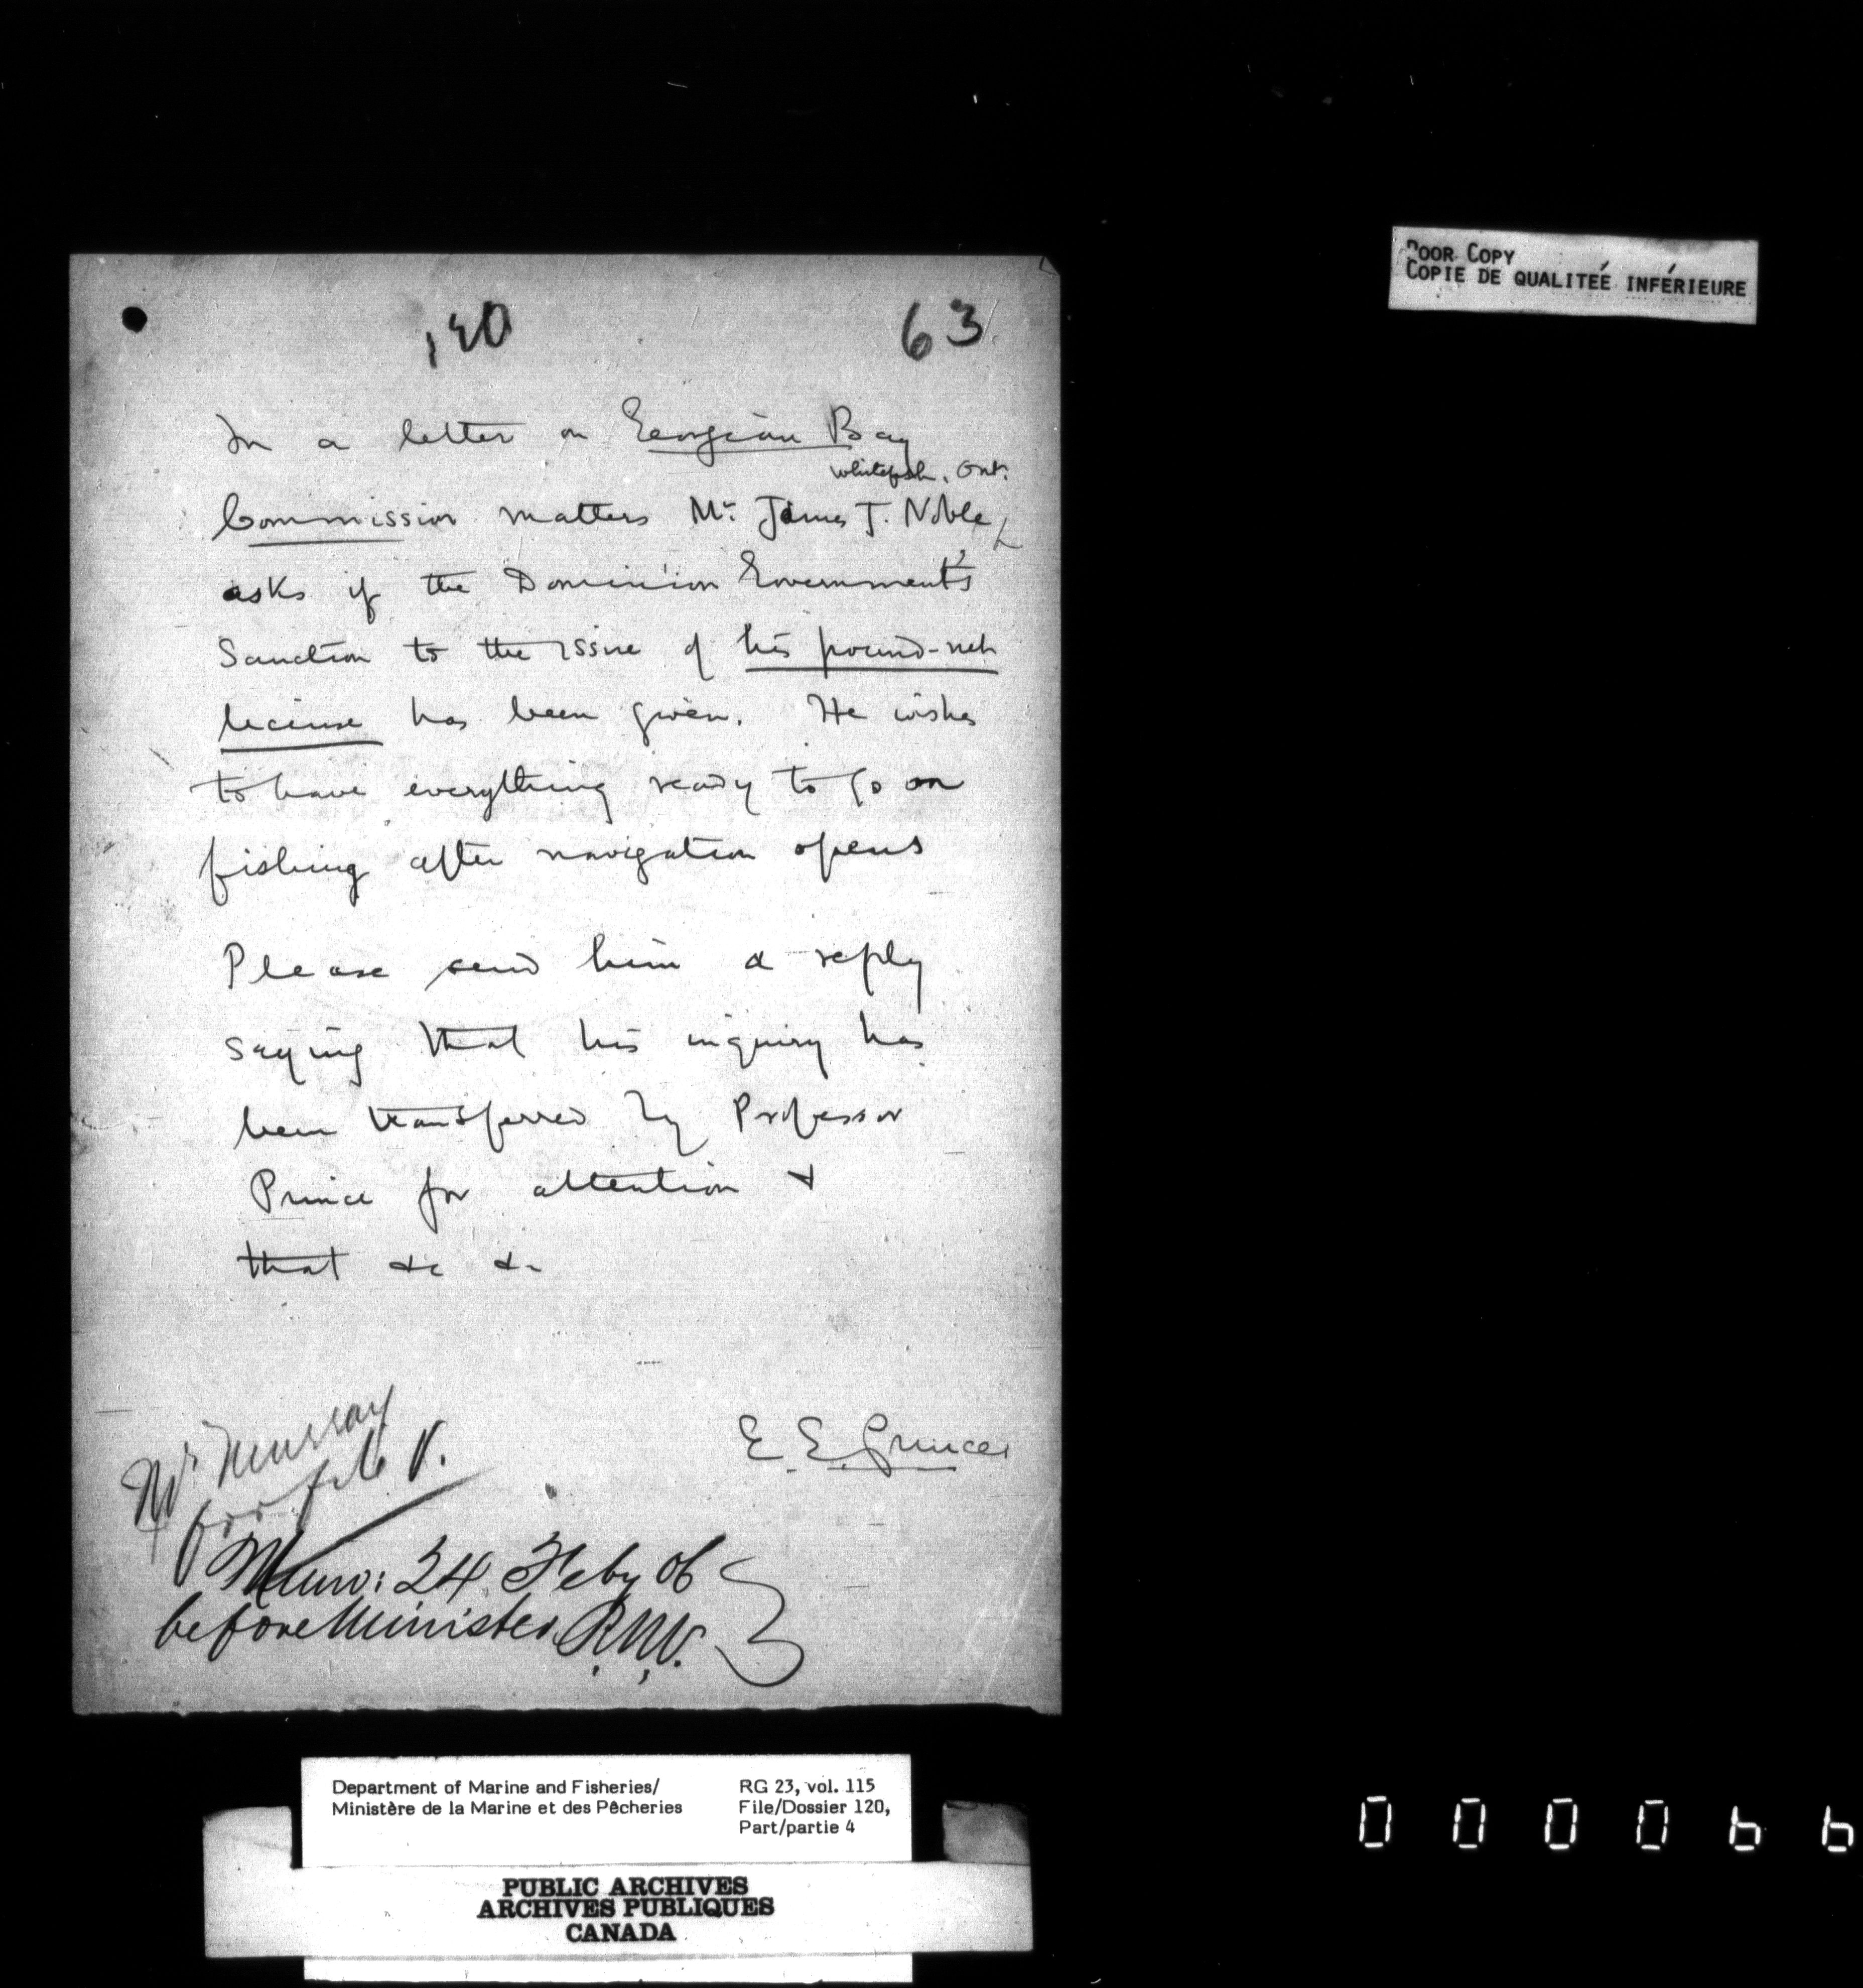 POOR COPY
COPIE DE QUALITEÉ INFÉRIEURE
120
63
In a letter on Georgian Bay
Whitefish, Ont.
Commission matters Mr. James J. Noble
asks if the Dominion Government's
Sanction to the issue of his pound-net
license has been given. He wishes
to have everything ready to go on
fishing after navigation opens
Please send him a reply
saying that his inquiry has
been transferred by Professor
Prince for attention &
that &c &c
E. E. Prince
Mr Murray
for file V.
Memo: 24 Feby 06
before Minister R.N.V.
Department of Marine and Fisheries/
Ministère de la Marine et des Pêcheries
RG 23, vol. 115
File/Dossier 120,
Part/partie 4
PUBLIC ARCHIVES
ARCHIVES PUBLIQUES
CANADA
000066